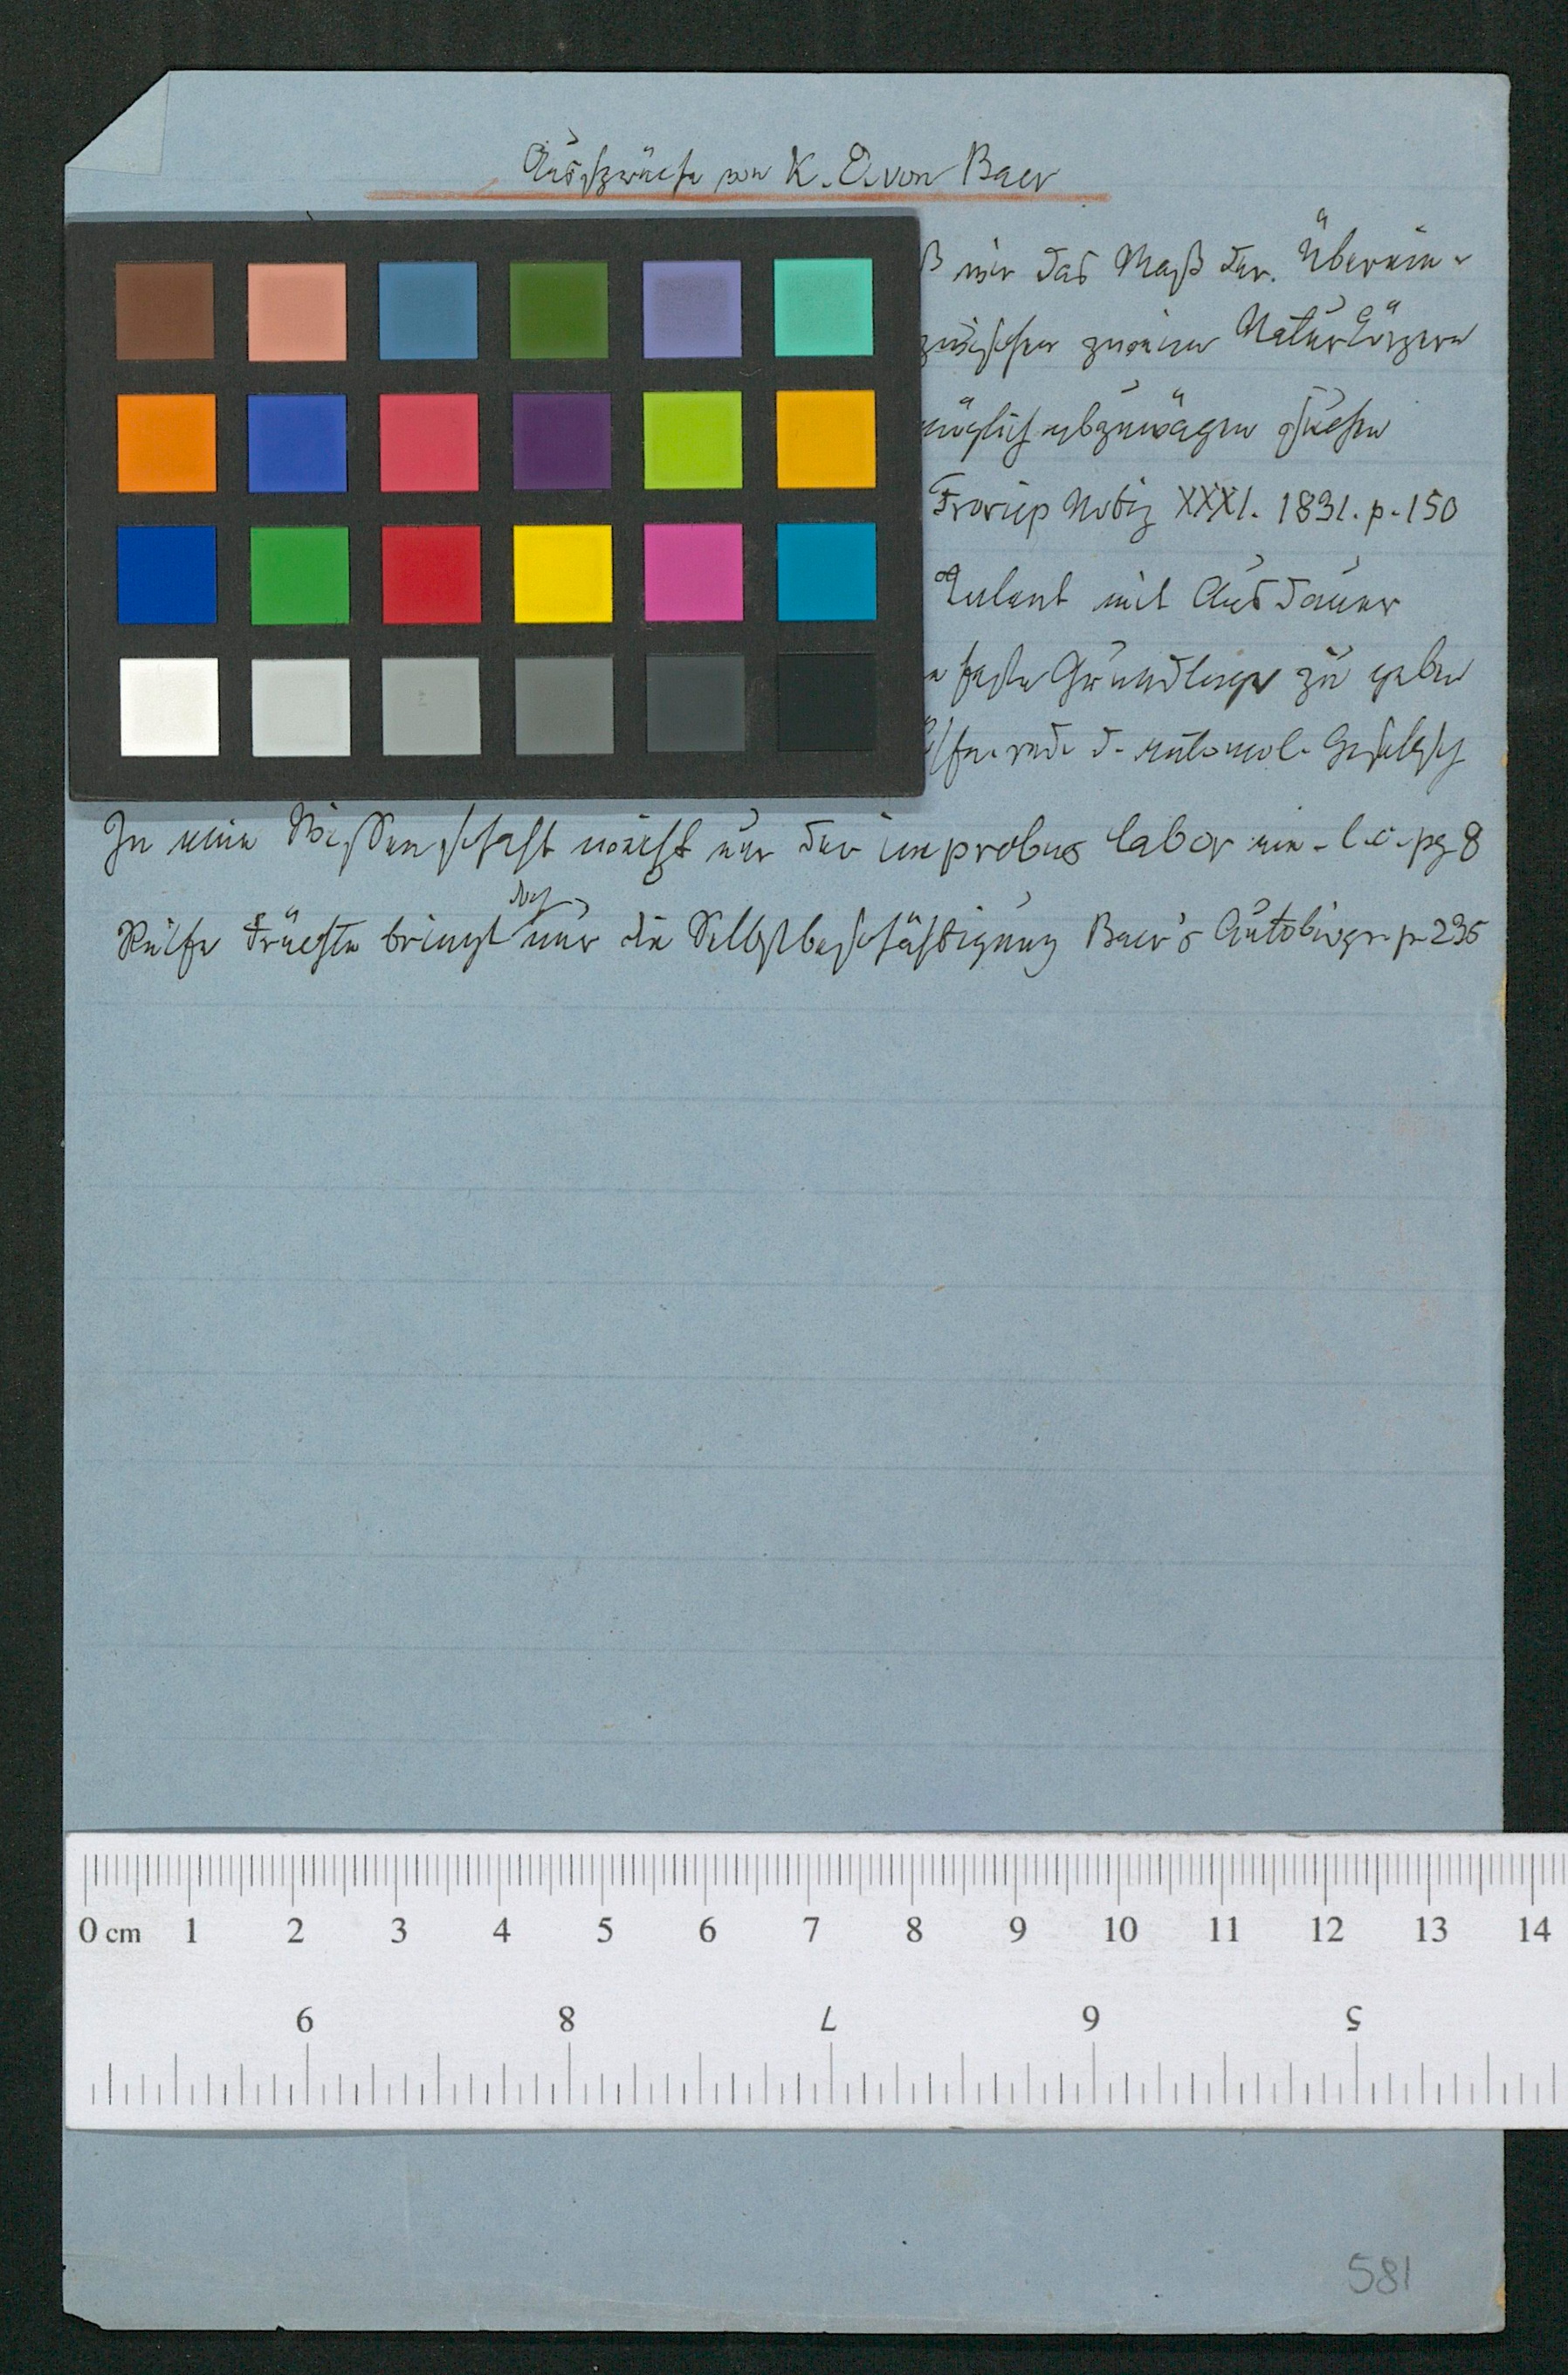 Aussprüche von K. E. von Baer
ß wir das Maß der Überein-
zwischen zweien Naturkörpern
möglich abzuwägen suchen
Froriep Notiz XXXI. 1831. p. 150
Talent mit Ausdauer
feste Grundlage zu geben
rede d. entomol. Gesellsch
In eine Wissenschaft weiht nur der improbus labor ein. l. c. pg 8
doch
Reife Früchte bringt nur die Selbstbeschäftigung Baer's Autobiogr. p 235
0 cm 1 2 3 4 5 6 7 8 9 10 11 12 13 14
9 8 7 6 5
581